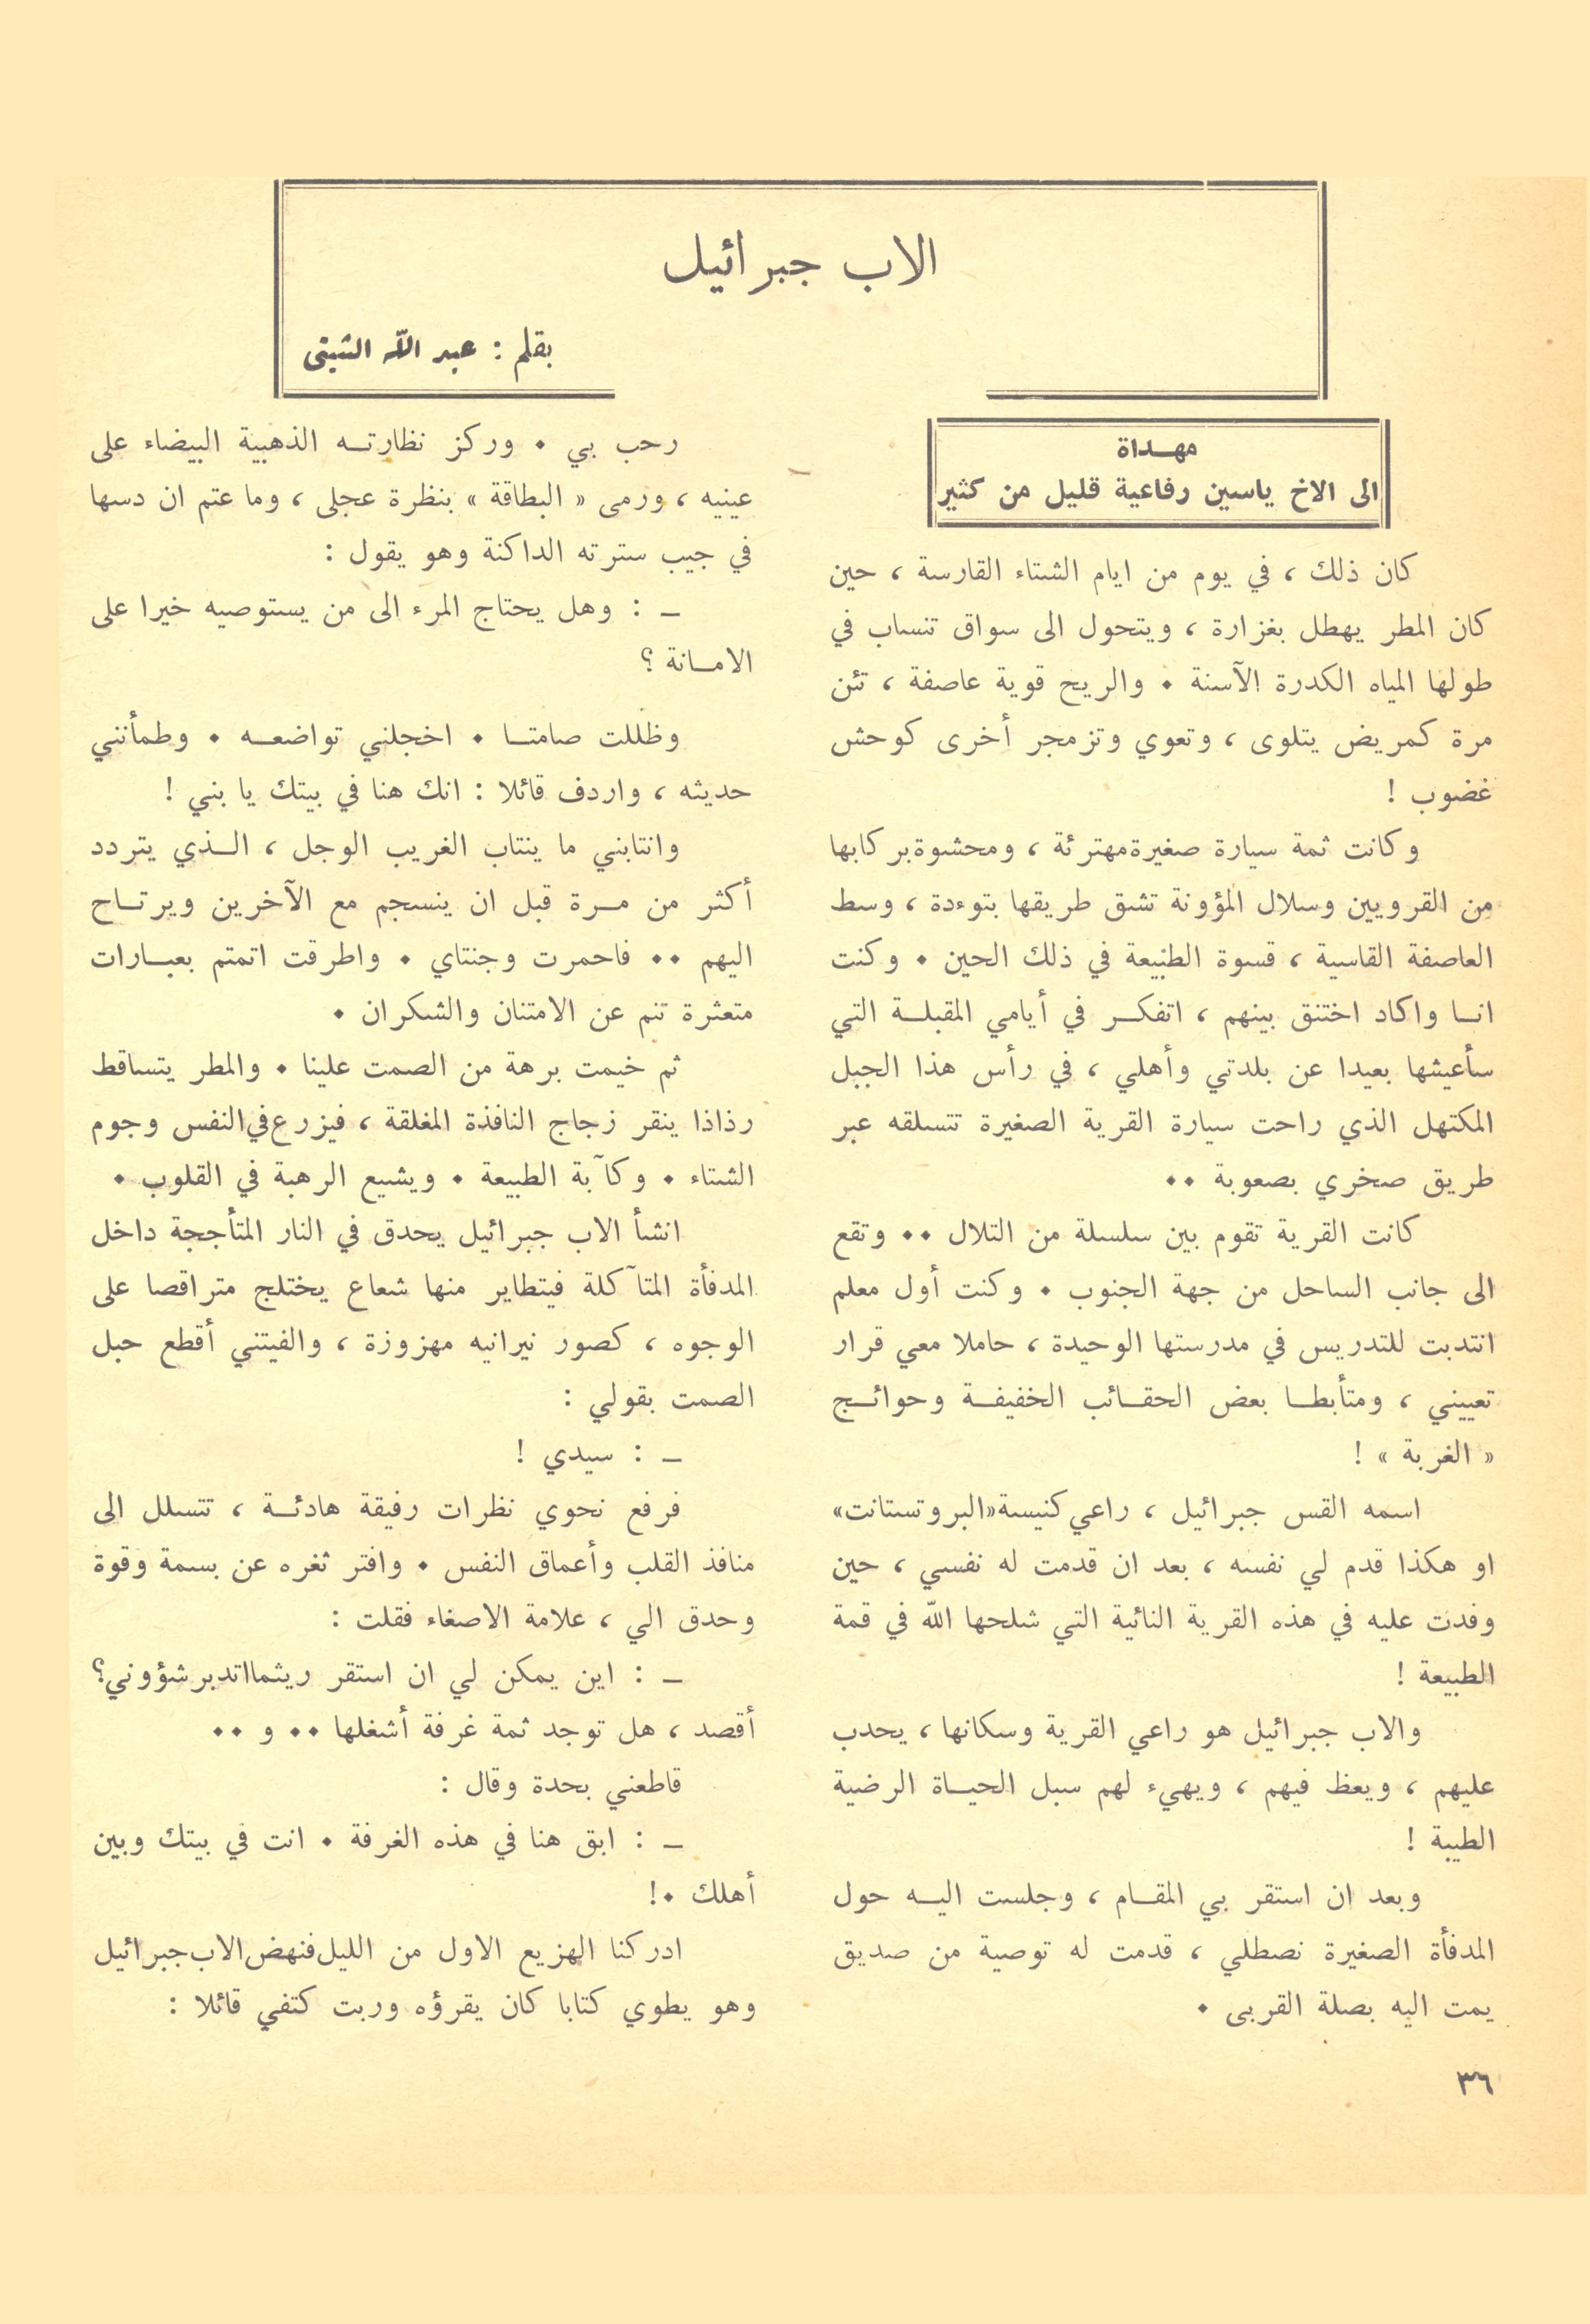 الاب جبرائيل
بقلم : عبد الله الشيتي
مهداة
الى الاخ ياسين رفاعية قليل من كثير
كان ذلك ، في يوم من ايام الشتاء القارسة ، حين
كان المطر يهطل بغزارة ، ويتحول الى سواق تنساب في
طولها المياه الكدرة الآسنة ٠ والريح قوية عاصفة ، تئن
مرة كمريض يتلوى ، وتعوي وتزمجر أخرى كوحش
غضوب !
وكانت ثمة سيارة صغيرة مهترئة ، ومحشوة بركابها
من القرويين وسلال المؤونة تشق طريقها بتوءدة ، وسط
العاصفة القاسية ، قسوة الطبيعة في ذلك الحين ٠ وكنت
انا واكاد اختنق بينهم ، اتفكر في أيامي المقبلة التي
سأعيشها بعيدا عن بلدتي وأهلي ، في رأس هذا الجبل
المكتهل الذي راحت سيارة القرية الصغيرة تتسلقه عبر
طريق صخري بصعوبة ٠٠
كانت القرية تقوم بين سلسلة من التلال ٠٠ وتقع
الى جانب الساحل من جهة الجنوب ٠ وكنت أول معلم
انتدبت للتدريس في مدرستها الوحيدة ، حاملا معي قرار
تعييني ، ومتأبطا بعض الحقائب الخفيفة وحوائج
« الغربة » !
اسمه القس جبرائيل ، راعي كنيسة «البروتستانت»
او هكذا قدم لي نفسه ، بعد ان قدمت له نفسي ، حين
وفدت عليه في هذه القرية النائية التي شلحها الله في قمة
الطبيعة !
والاب جبرائيل هو راعي القرية وسكانها ، يحدب
عليهم ، ويعظ فيهم ، ويهيء لهم سبل الحياة الرضية
الطيبة !
وبعد ان استقر بي المقام ، وجلست اليه حول
المدفأة الصغيرة نصطلي ، قدمت له توصية من صديق
يمت اليه بصلة القربى ٠
رحب بي ٠ وركز نظارته الذهبية البيضاء على
عينيه ، ورمى « البطاقة » بنظرة عجلى ، وما عتم ان دسها
في جيب سترته الداكنة وهو يقول :
ـ : وهل يحتاج المرء الى من يستوصيه خيرا على
الامانة ؟
وظللت صامتا ٠ اخجلني تواضعه ٠ وطمأنني
حديثه ، واردف قائلا : انك هنا في بيتك يا بني !
وانتابني ما ينتاب الغريب الوجل ، الذي يتردد
أكثر من مرة قبل ان ينسجم مع الآخرين ويرتاح
اليهم ٠٠ فاحمرت وجنتاي ٠ واطرقت اتمتم بعبارات
متعثرة تنم عن الامتنان والشكران ٠
ثم خيمت برهة من الصمت علينا ٠ والمطر يتساقط
رذاذا ينقر زجاج النافذة المغلقة ، فيزرع في النفس وجوم
الشتاء ٠ وكآبة الطبيعة ٠ ويشيع الرهبة في القلوب ٠
انشأ الاب جبرائيل يحدق في النار المتأججة داخل
المدفأة المتآكلة فيتطاير منها شعاع يختلج متراقصا على
الوجوه ، كصور نيرانيه مهزوزة ، والفيتني أقطع حبل
الصمت بقولي :
ـ : سيدي !
فرفع نحوي نظرات رفيقة هادئة ، تتسلل الى
منافذ القلب وأعماق النفس ٠ وافتر ثغره عن بسمة وقوة
وحدق الي ، علامة الاصغاء فقلت :
ـ : اين يمكن لي ان استقر ريثما اتدبر شؤوني؟
أقصد ، هل توجد ثمة غرفة أشغلها ٠٠ و ٠٠
قاطعني بحدة وقال :
ـ : ابق هنا في هذه الغرفة ٠ انت في بيتك وبين
أهلك ٠!
ادركنا الهزيع الاول من الليل فنهض الاب جبرائيل
وهو يطوي كتابا كان يقرؤه وربت كتفي قائلا :
٣٦